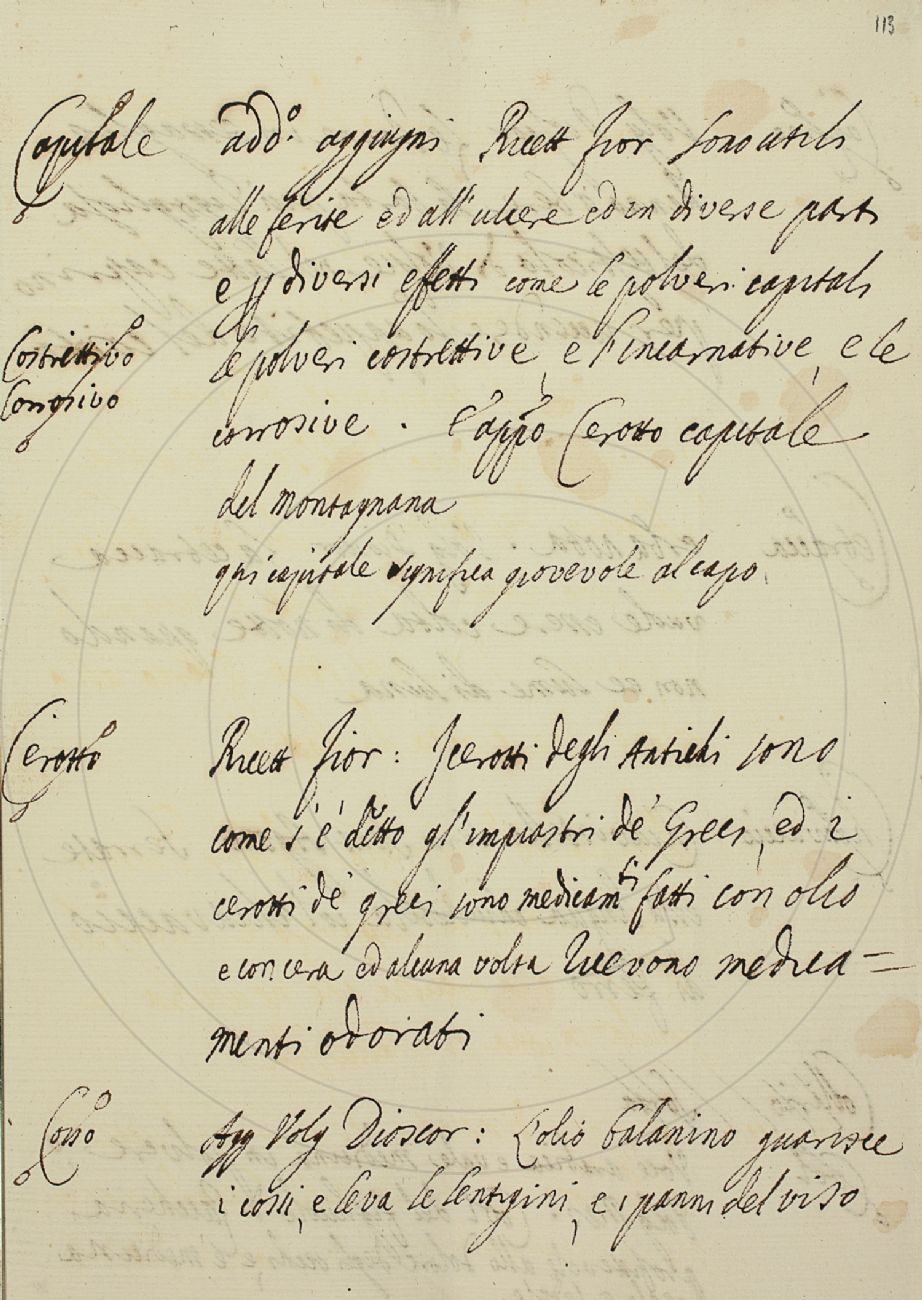 113
Capitale add.º aggiugni Ricett Fior sono utili
alle ferite ed all'ulcere ed in diverse parti
e p diversi effetti come le polveri capitali
Costrettivo le polveri costrettive, e l'incarnative, e le
Corrosivo corrosive. E appo Cerotto capitale
del Montagnana
qui capitale significa giovevole al capo
Cerotto Ricett Fior: I cerotti degli Antichi sono
come s'è detto gl'impiastri de' Greci, ed i
cerotti de' greci sono medicamti fatti con olio
e con cera ed alcuna volta ricevono medica=
menti odorati
Cosso Agg Volg Dioscor: L'olio balanino guarisce
i cossi, e leva le lentigini, e i panni del viso